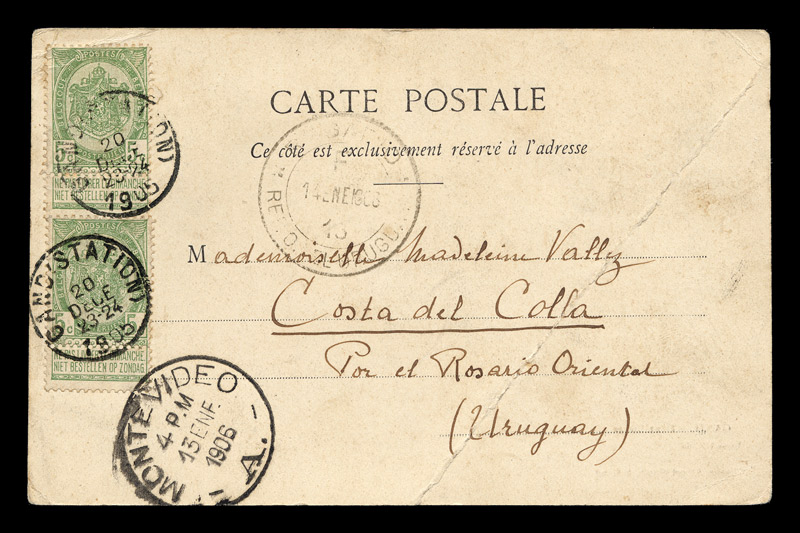 CARTE POSTALE
Ce côté est exclusivement réservé à l'adresse
Mademoiselle Madeleine Vallez
Costa del Colla
Por el Rosario Oriental
(Uruguay)
POSTES
BELGIQUE
5
NE PAS LIVRER LE DIMANCHE
NIET BESTELLEN OP ZONDAG
(STATION)
20
DECE
23-24
1905
POSTES
NE PAS LIVRER LE DIMANCHE
NIET BESTELLEN OP ZONDAG
GAND (STATION)
20
DECE
23-24
1905
14 ENE 1906
MONTEVIDEO
4 PM
13 ENE
1906
A.